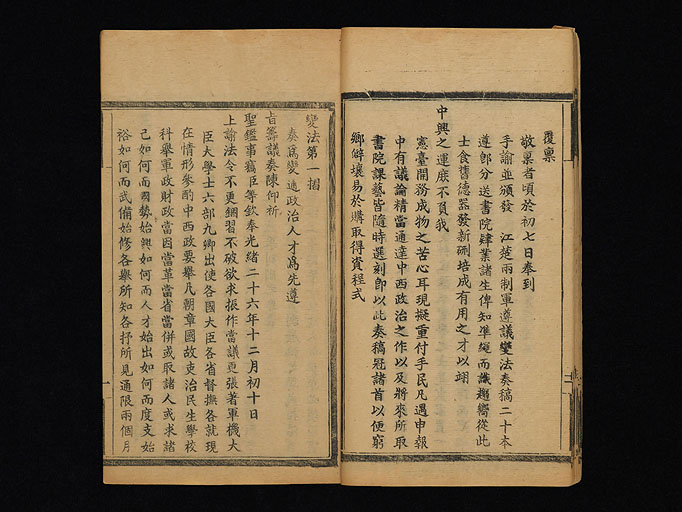 覆稟
敬稟者頃於初七日奉到
手諭並頒發　江楚兩制軍遵議變法奏稿二十本
遵即分送書院肄業諸生俾知準繩而識趨嚮從此
士食舊德器發新硎培成有用之才以翊
中興之運庶不負我
憲臺開務成物之苦心耳現擬重付手民凡遇申報
中有議論精當通達中西政治之作以及將來所取
書院課藝皆隨時選刻即以此奏稿冠諸首以便窮
鄉僻壤易於購取得資程式
變法第一摺
奏為變通政治人才為先遵
旨籌議奏陳仰祈
聖鑑事竊臣等欽奉光緒二十六年十二月初十日
上諭法令不更錮習不破欲求振作當議更張著軍機大
臣大學士六部九卿出使各國大臣各省督撫各就現
在情形參酌中西政要舉凡朝章國故吏治民生學校
科舉軍政財政當因當革當省當併或取諸人或求諸
己如何而國勢始興如何而人才始出如何而度支始
裕如何而武備始修各舉所知各抒所見通限兩個月